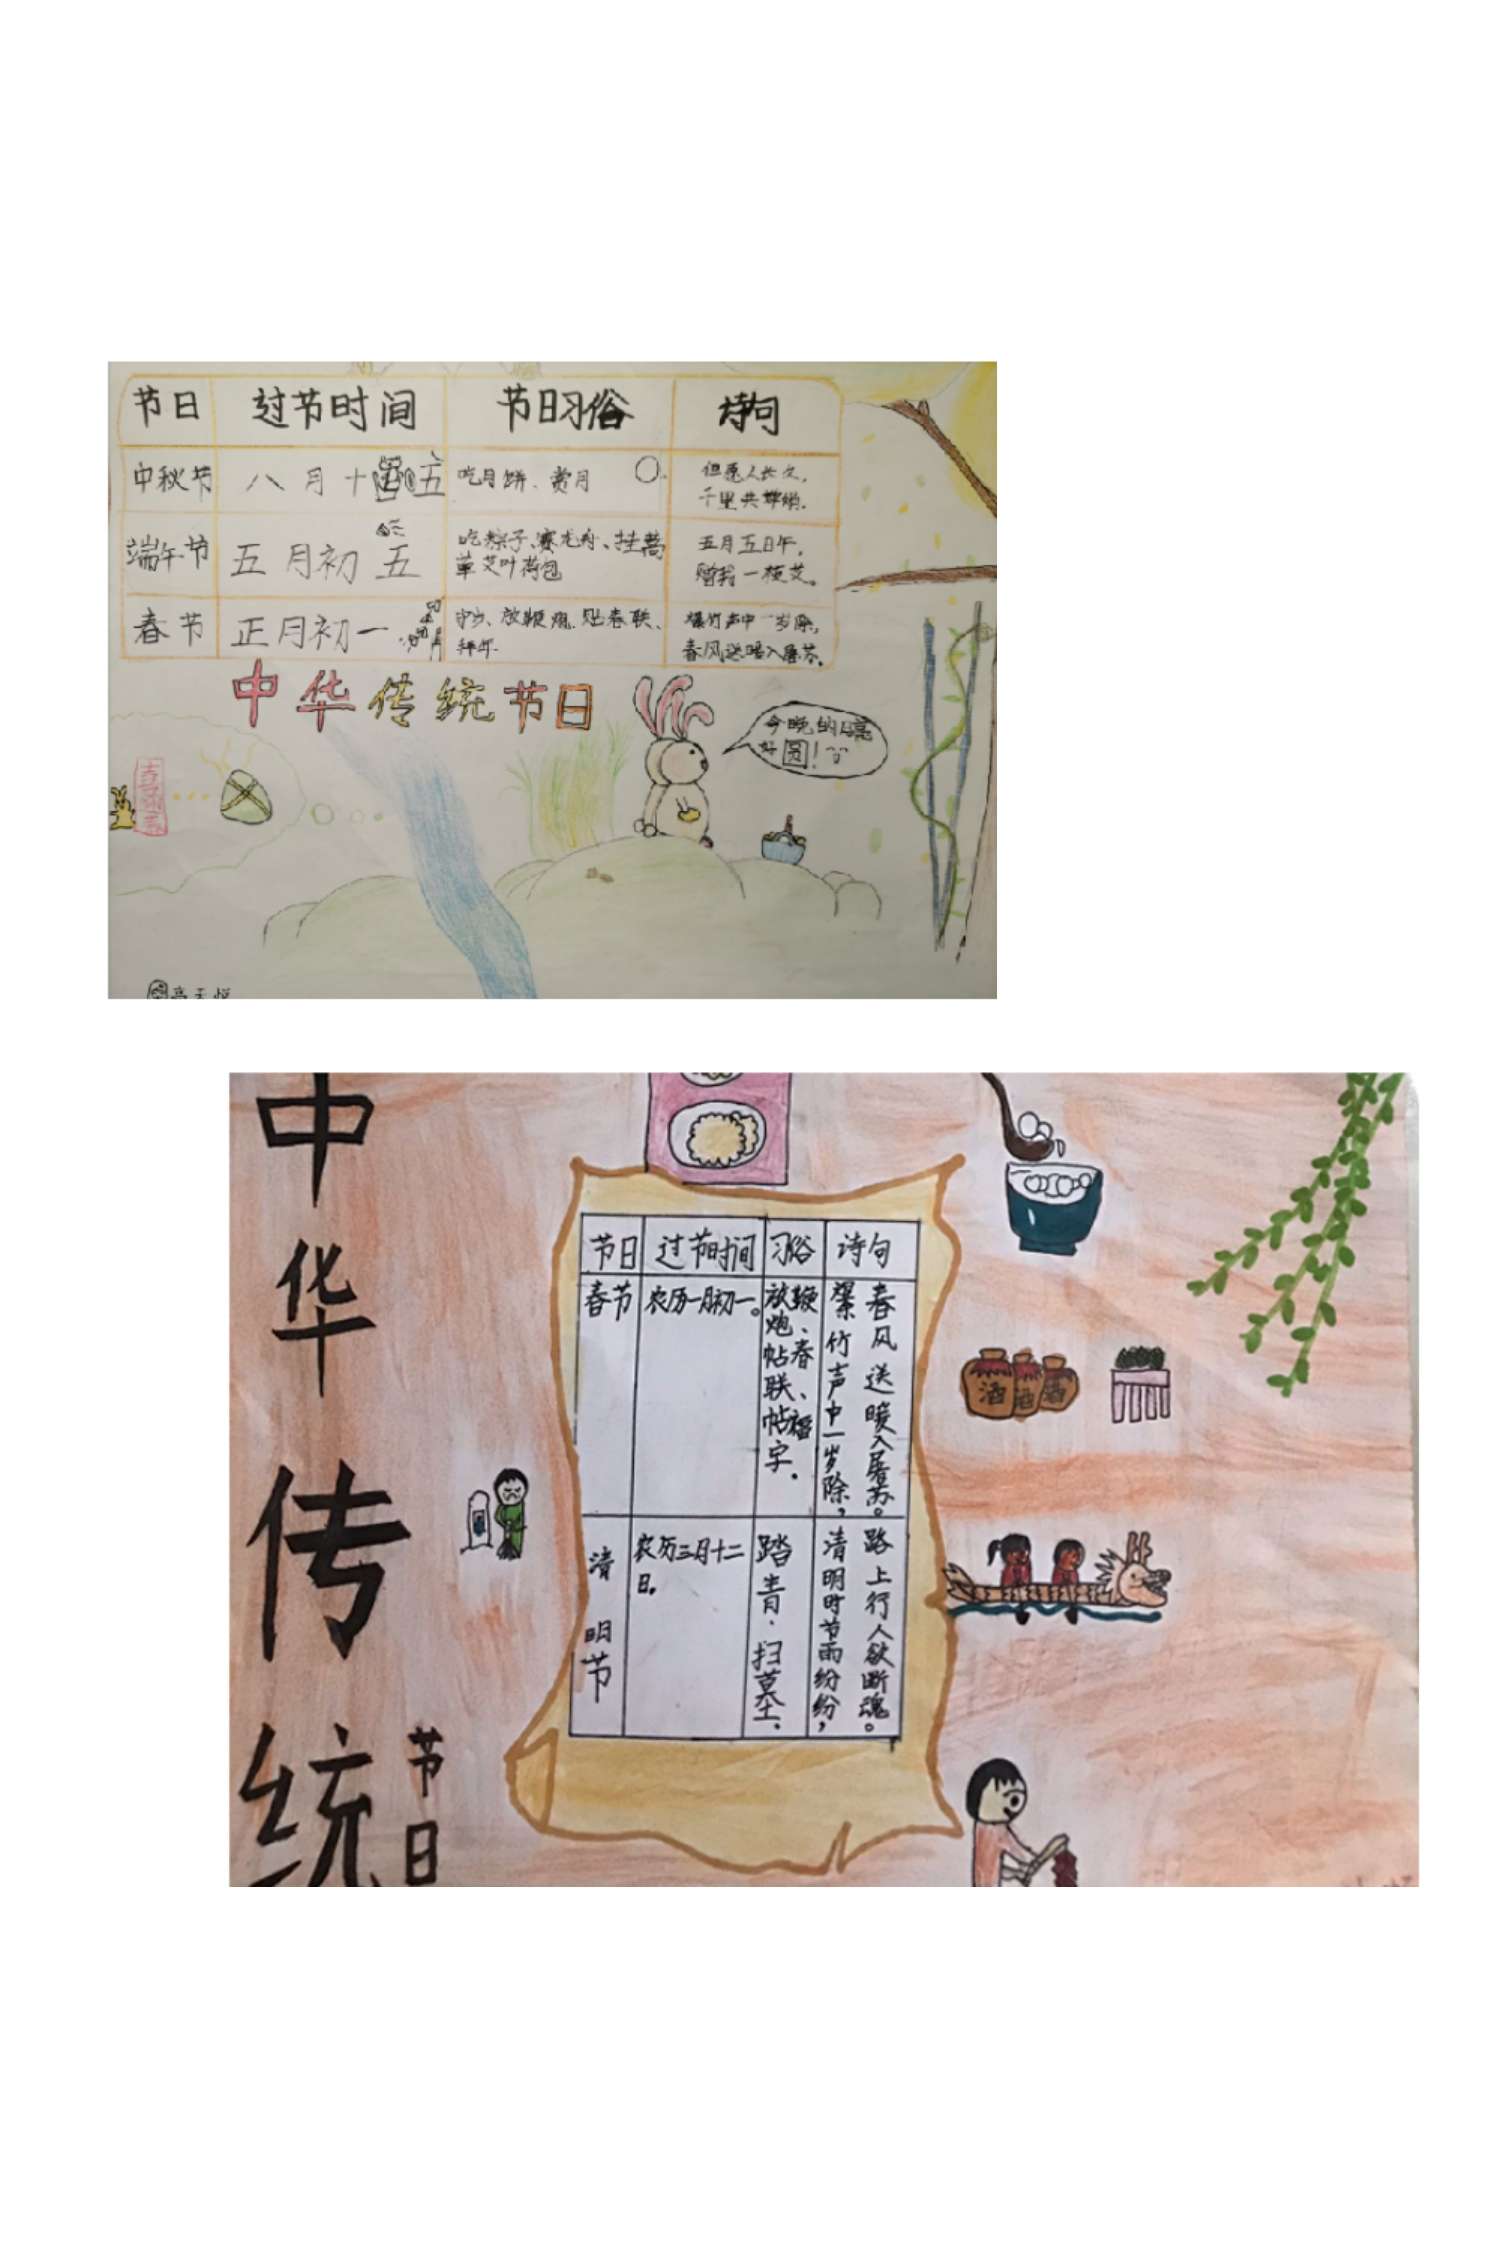 节日 过节时间 节日习俗 诗句
中秋节 八月十五 吃月饼、赏月 但愿人长久,
千里共婵娟.
端午节 五月初五 吃粽子、赛龙舟、挂菖
草艾叶荷包 五月五日午,
赠我一枝艾。
春节 正月初一 守岁、放鞭炮、贴春联、
拜年. 爆竹声中一岁除,
春风送暖入屠苏。
中华传统节日
今晚的
好圆!
高天悦
中华传统节日
节日 过节时间 习俗 诗句
春节 农历一月初一。 放鞭炮、帖春联、帖福字. 爆竹声中一岁除,
春风送暖入屠苏。
清明节 农历三月十二
日。 踏青.扫墓. 清明时节雨纷纷,
路上行人欲断魂。
酒 酒 酒